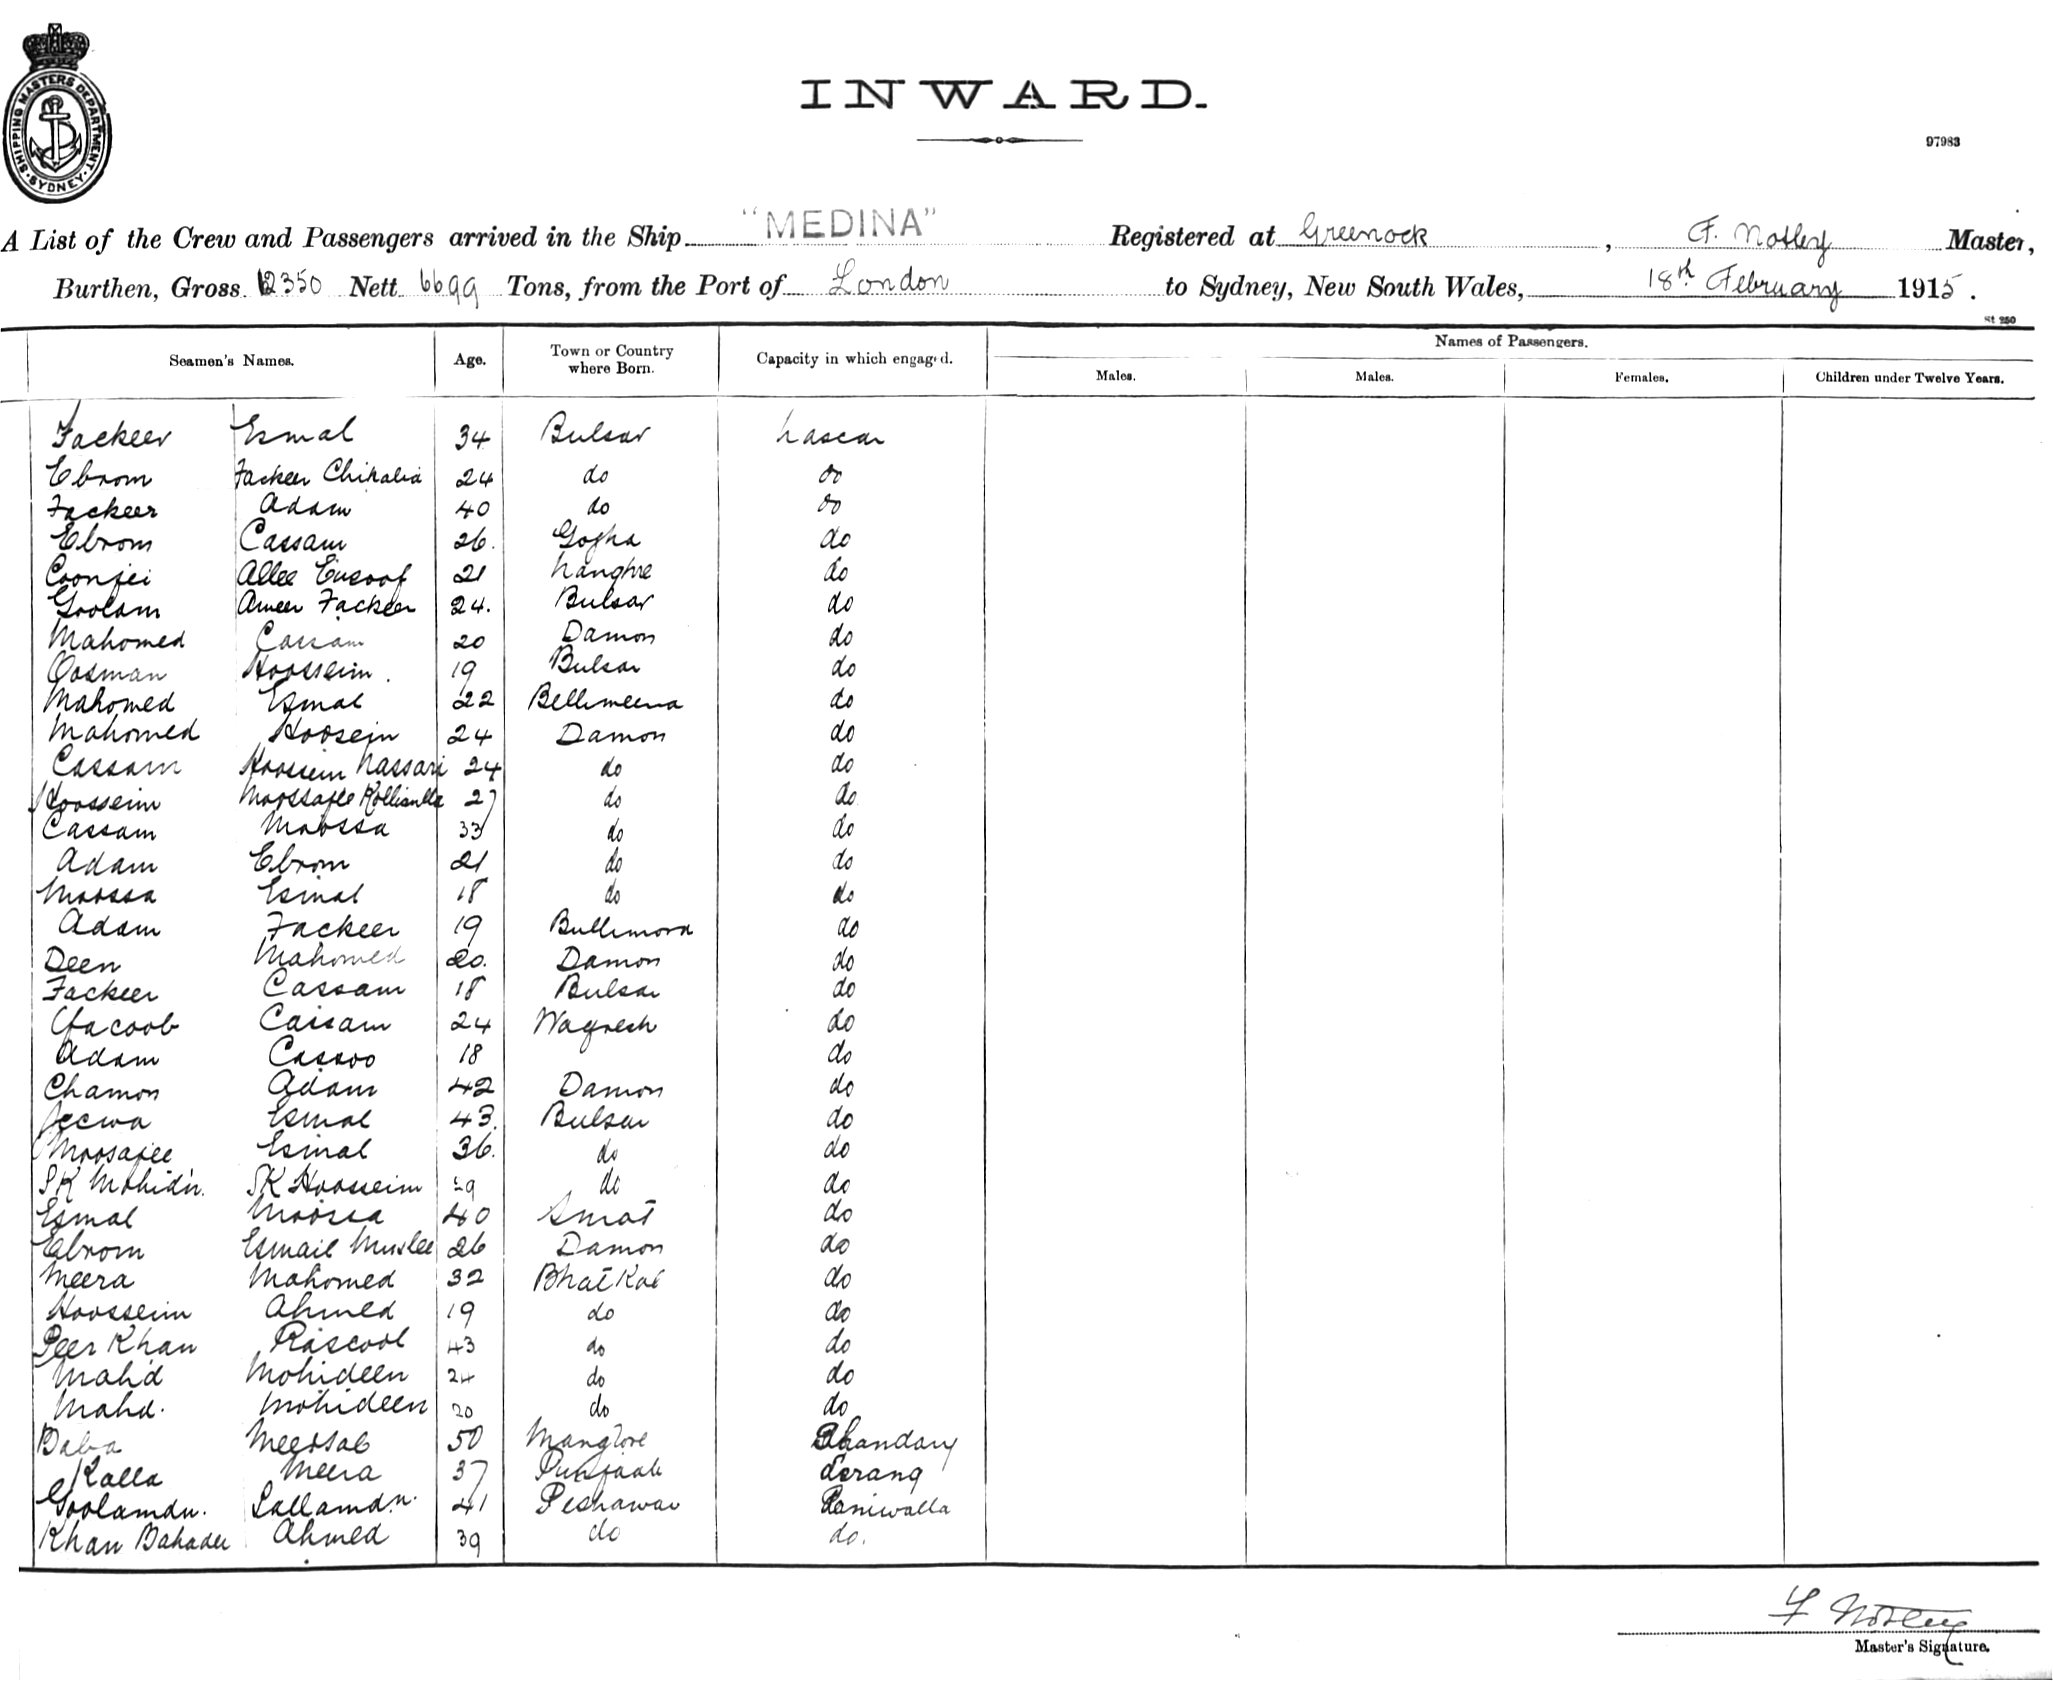 SHIPPING MASTERS DEPARTMENT. SYDNEY.
INWARD.
97983
A List of the Crew and Passengers arrived in the Ship "MEDINA" Registered at Greenock, F. Notley Master,
Burthen, Gross 12350 Nett 6699 Tons, from the Port of London to Sydney, New South Wales, 18th February 1915.
St 250
Seamen's Names. Age. Town or Country where Born. Capacity in which engaged. Names of Passengers.
Males. Males. Females. Children under Twelve Years.
Fackeer Esmal 34 Bulsar Lascar
Ebrom Fackeer Chikalia 24 do do
Fackeer Adam 40 do do
Ebrom Cassam 26. Gogha do
Coonjei Allee Eusoof 21 do
Goolam Ameer Fackeer 24. Bulsar do
Mahomed Cassam 20 Damon do
Oosman Hoosseim. 19 Bulsar do
Mahomed Esmal 22 Bellimeena do
Mahomed Hoosein 24 Damon do
Cassam Hoossein Nassari 24 do do
Hoosseim Moossajee 27 do do
Cassam Moossa 33 do do
Adam Ebrom 21 do do
Moossa Esmal 18 do do
Adam Fackeer 19 Bullimora do
Deen Mahomed 20. Damon do
Fackeer Cassam 18 Bulsar do
Yacoob Cassam 24 do
Adam Cassoo 18 do
Chamon Adam 42 Damon do
Jeewa Esmal 43. Bulsar do
Moosajee Esmal 36. do do
SK Mohidn. SK Hoosseim 29 do do
Esmal Moossa 40 Surat do
Ebrom Esmail Muslee 26 Damon do
Meera Mahomed 32 Bhatkal do
Hoosseim Ahmed 19 do do
Peer Khan Rascool 43 do do
Mahd Mohideen 24 do do
Mahd. Mohideen 20 do do
Baba Meersab 50 Manglore Bhandary
Kalla Meera 37 Punjaab Serang
Goolamdn. Lallamdn. 41 Peshawar Paniwalla
Khan Bahader Ahmed 39 do do.
F Notley
Master's Signature.